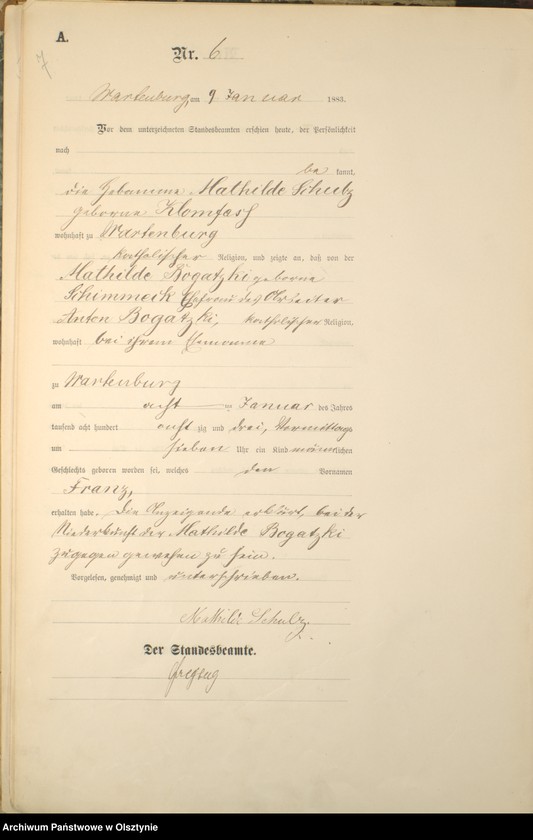 A.
7
Nr. 6
Wartenburg, am 9 Januar 1883.
Vor dem unterzeichneten Standesbeamten erschien heute, der Persönlichkeit
nach
be kannt,
die Hebamme Mathilde Schulz
geborne Klomfass
wohnhaft zu Wartenburg
katholischer Religion, und zeigte an, daß von der
Mathilde Bogatzki geborne
Schimmeck Ehefrau des Arbeiter
Anton Bogatzki, katholischer Religion,
wohnhaft bei ihrem Ehemanne
zu Wartenburg
am acht ten Januar des Jahres
tausend acht hundert acht zig und drei, Vormittags
um sieben Uhr ein Kind männlichen
Geschlechts geboren worden sei, welches den Vornamen
Franz,
erhalten habe. Die Anzeigende erklärt, bei der
Niederkunft der Mathilde Bogatzki
zugegen gewesen zu sein.
Vorgelesen, genehmigt und unterschrieben.
Mathilde Schulz.
Der Standesbeamte.
Archiwum Państwowe w Olsztynie